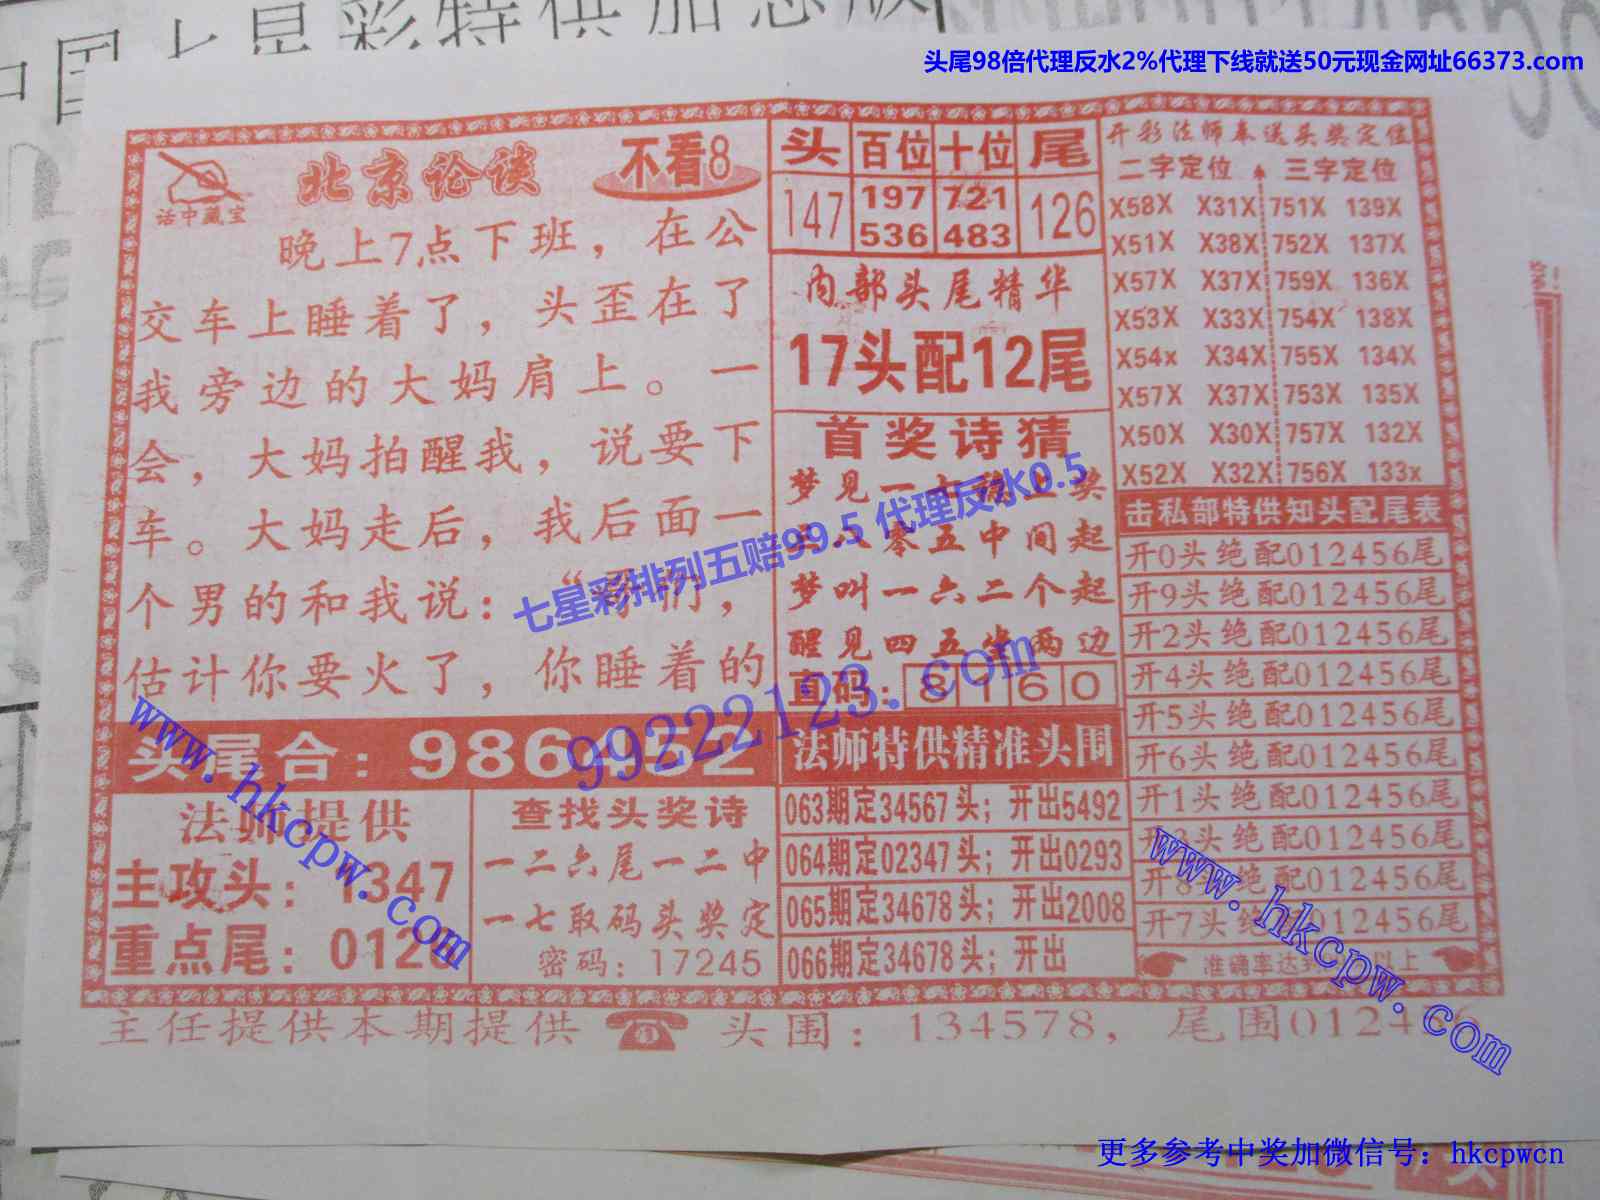 头尾98倍代理反水2%代理下线就送50元现金网址66373.com
话中藏宝
北京论谈
不看8
晚上7点下班，在公
交车上睡着了，头歪在了
我旁边的大妈肩上。一
会，大妈拍醒我，说要下
车。大妈走后，我后面一
个男的和我说：“哥们，
估计你要火了，你睡着的
头尾合：986-452
法师提供
主攻头：1347
重点尾：0126
查找头奖诗
一二六尾一二中
一七取码头奖定
密码：17245
头 百位 十位 尾
147 197 721 126
536 483
内部头尾精华
17头配12尾
首奖诗猜
梦见一七
奖
八零五中间起
梦叫一六二个起
醒见四五坐两边
直码：8160
法师特供精准头围
063期定34567头；开出5492
064期定02347头；开出0293
065期定34678头；开出2008
066期定34678头；开出
开彩法师奉送头奖定位
二字定位 三字定位
X58X X31X 751X 139X
X51X X38X 752X 137X
X57X X37X 759X 136X
X53X X33X 754X 138X
X54x X34X 755X 134X
X57X X37X 753X 135X
X50X X30X 757X 132X
X52X X32X 756X 133x
击私部特供知头配尾表
开0头绝配012456尾
开9头绝配012456尾
开2头绝配012456尾
开4头绝配012456尾
开5头绝配012456尾
开6头绝配012456尾
开1头绝配012456尾
开3头绝配012456尾
开8头绝配012456尾
开7头绝配012456尾
准确率达到
以上
主任提供本期提供 头围：134578，尾围012456
七星彩排列五赔99.5 代理反水0.5
99222123.com
www.hkcpw.com
www.hkcpw.com
更多参考中奖加微信号：hkcpwcn